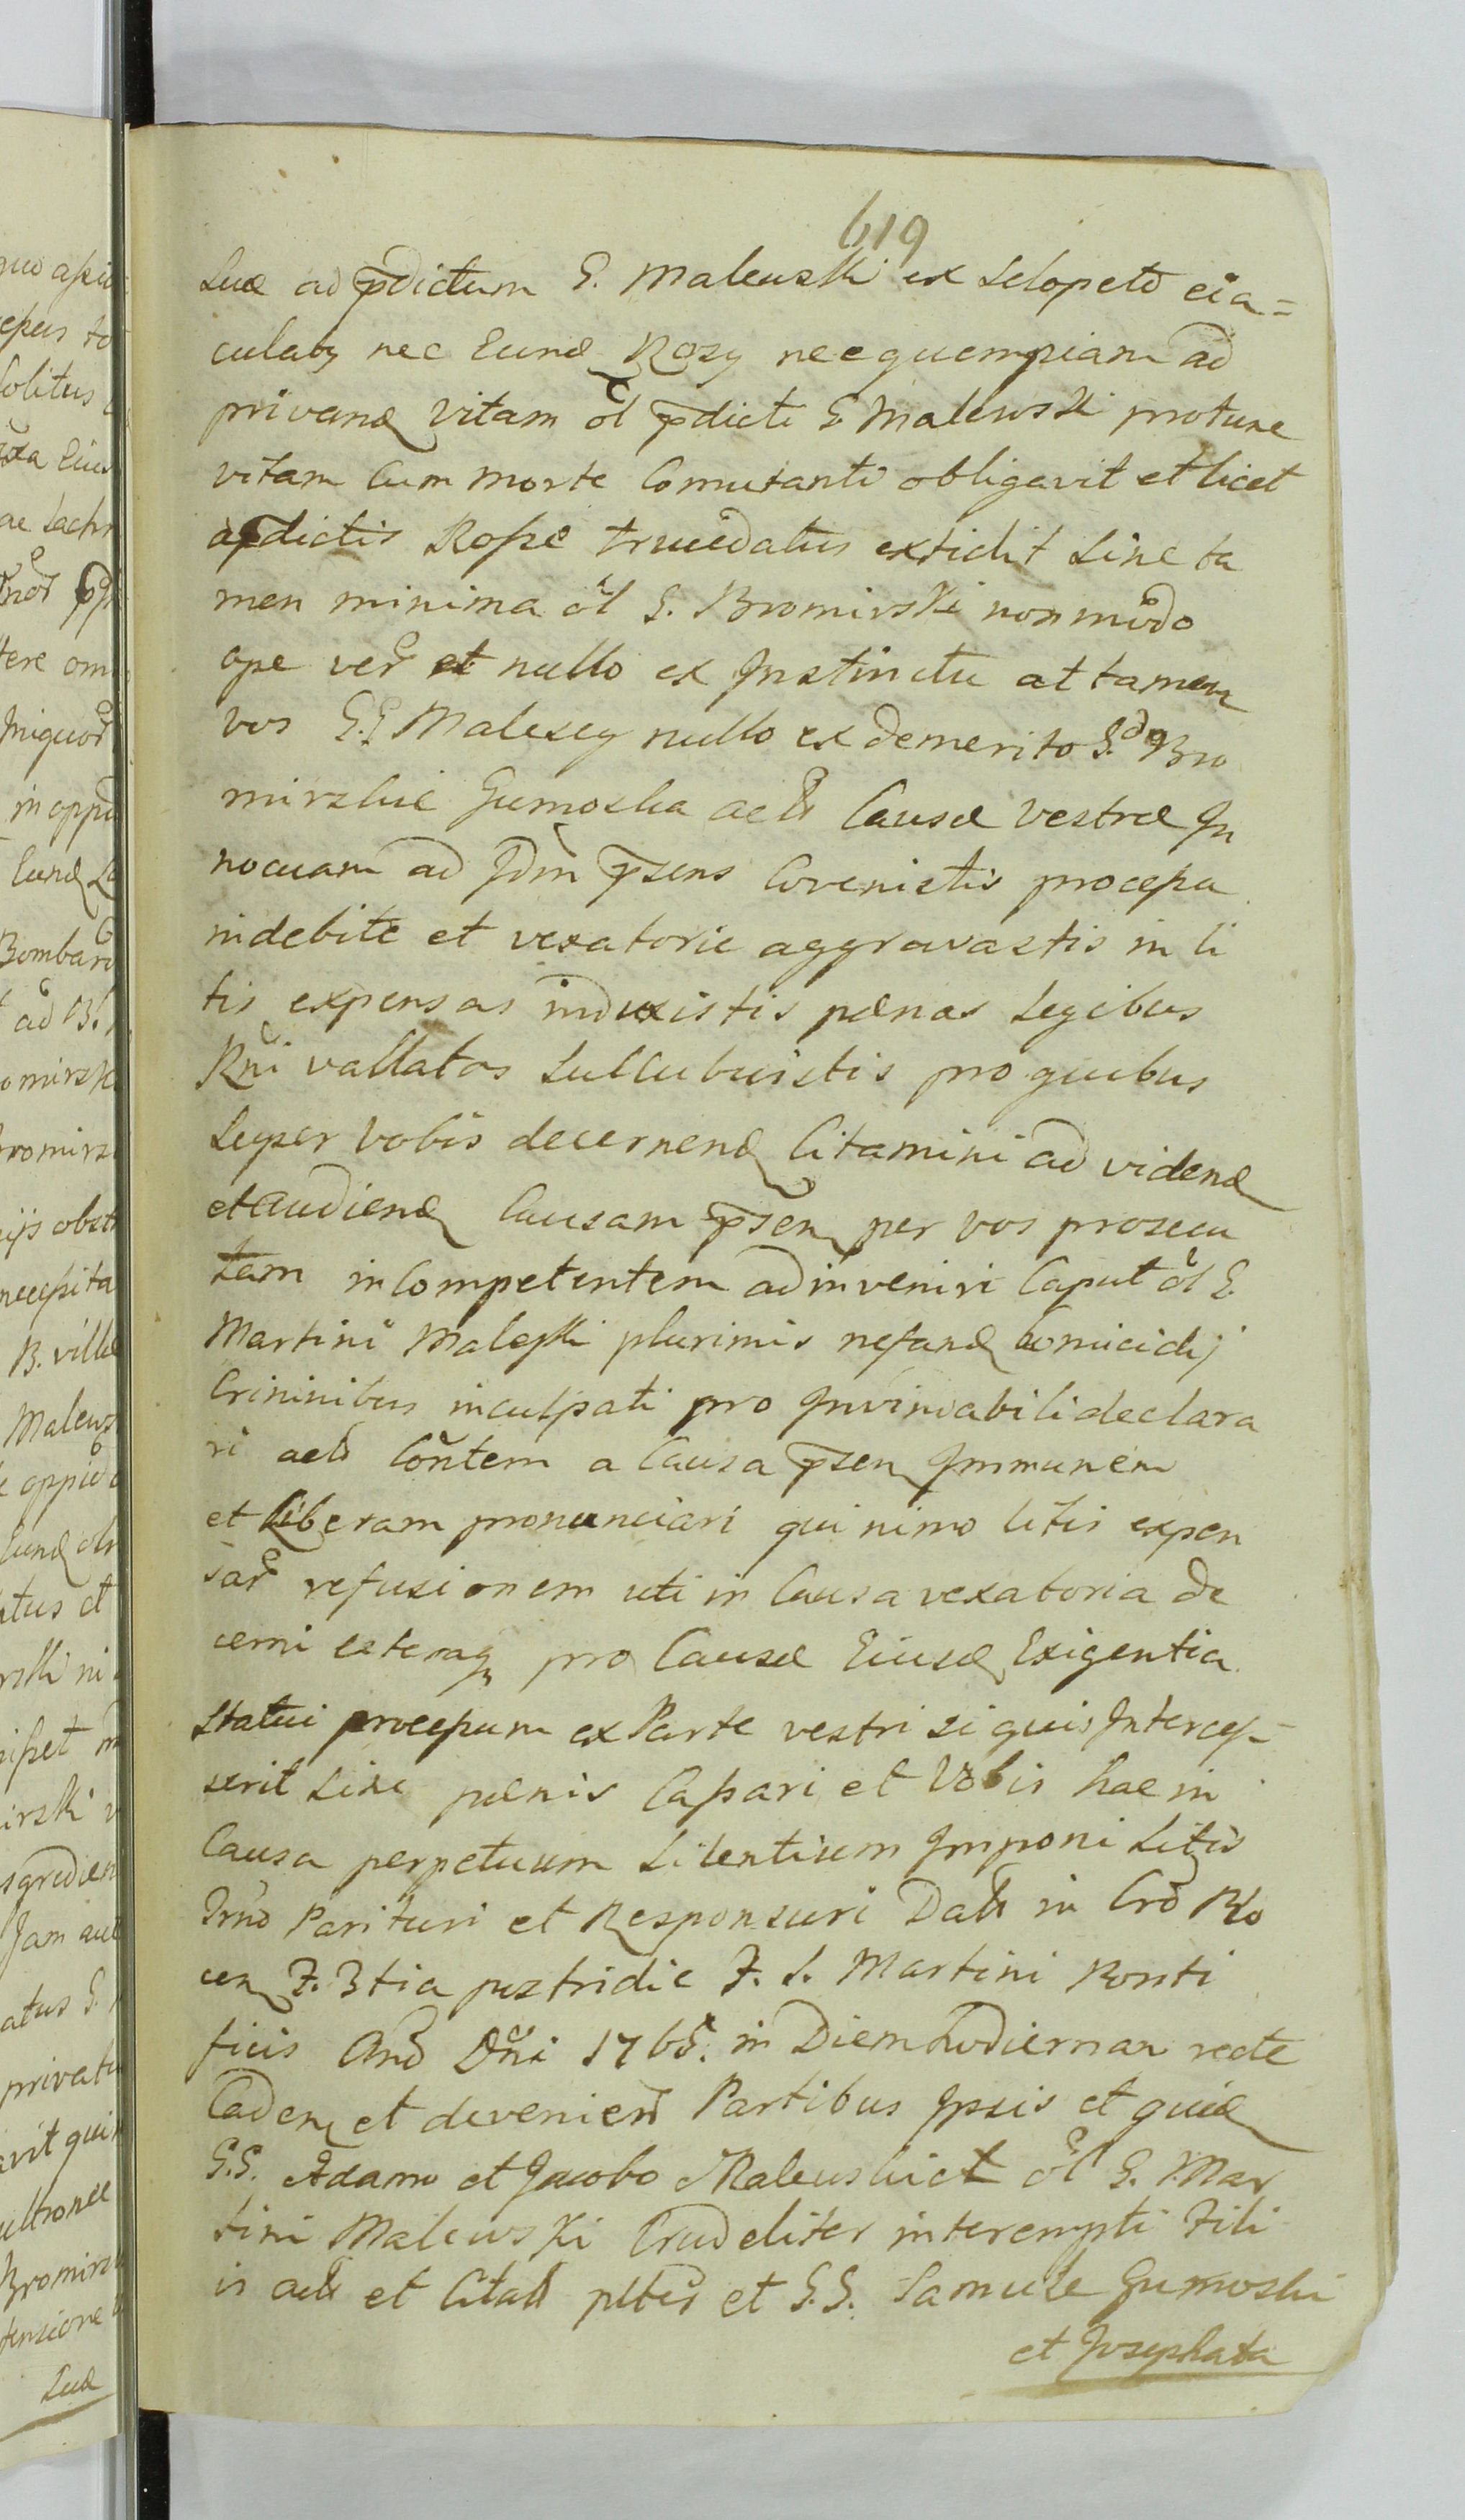 619
suæ ad pdictum G. Malewski ex sclopeto eia=
culatq nec Eund Rosq nec quempiam ad
privand vitam ol pdicti G Malewski protunc
vitam cum morte Comutanti obligavit et licet
a pdictis Rosse trucidatus extidit sine ta
men minima ol G. Bromirski non modo
ope ver et nullo ex Instinctu attamen
vos G.G Malescy nullo ex demerito G. do Bro
mirskie Gumoska actr Causæ vestræ In
nocuam ad Idm psens Convenistis processu
indebite et vexatorie aggravastis in li
tis expensas induxistis pænas Legibus
Rni vallatas succubuistis pro quibus
super vobis decernend Citamini ad vidend
et audiend Causam psen per vos prosecu
tam inCompetentem adinveniri Caput ol G.
Martini Maleski plurimis nefand homicidij
Criminibus inculpati pro Invindabili declara
ri actr Contem a Causa psen Immunem
et Liberam pronunciari qui nimo litis expen
sar refusionem uti in Causa vexatoria de
cerni cæteraq pro Causæ Eiusd Exigentia
statui processum ex Parte vestri si quis Interces-
serit sine pænis Cassari et Vobis hac in
Causa perpetuum silentium Imponi sitis
Trno Parituri et Responsuri Datt in Crō Ro
cen F. 3tia postridie F. S. Martini Ponti
ficis Anō Dni 1765. in Diem hodiernam recte
Caden et devenien Partibus Ipsis et quid
G.G. Adamo et Jacobo Malewskie ol G. Mar
tini Malewski Crudeliter interempti Fili
is actr et Citatt pltis et G.G. Samuele Gumoski
et Josephata